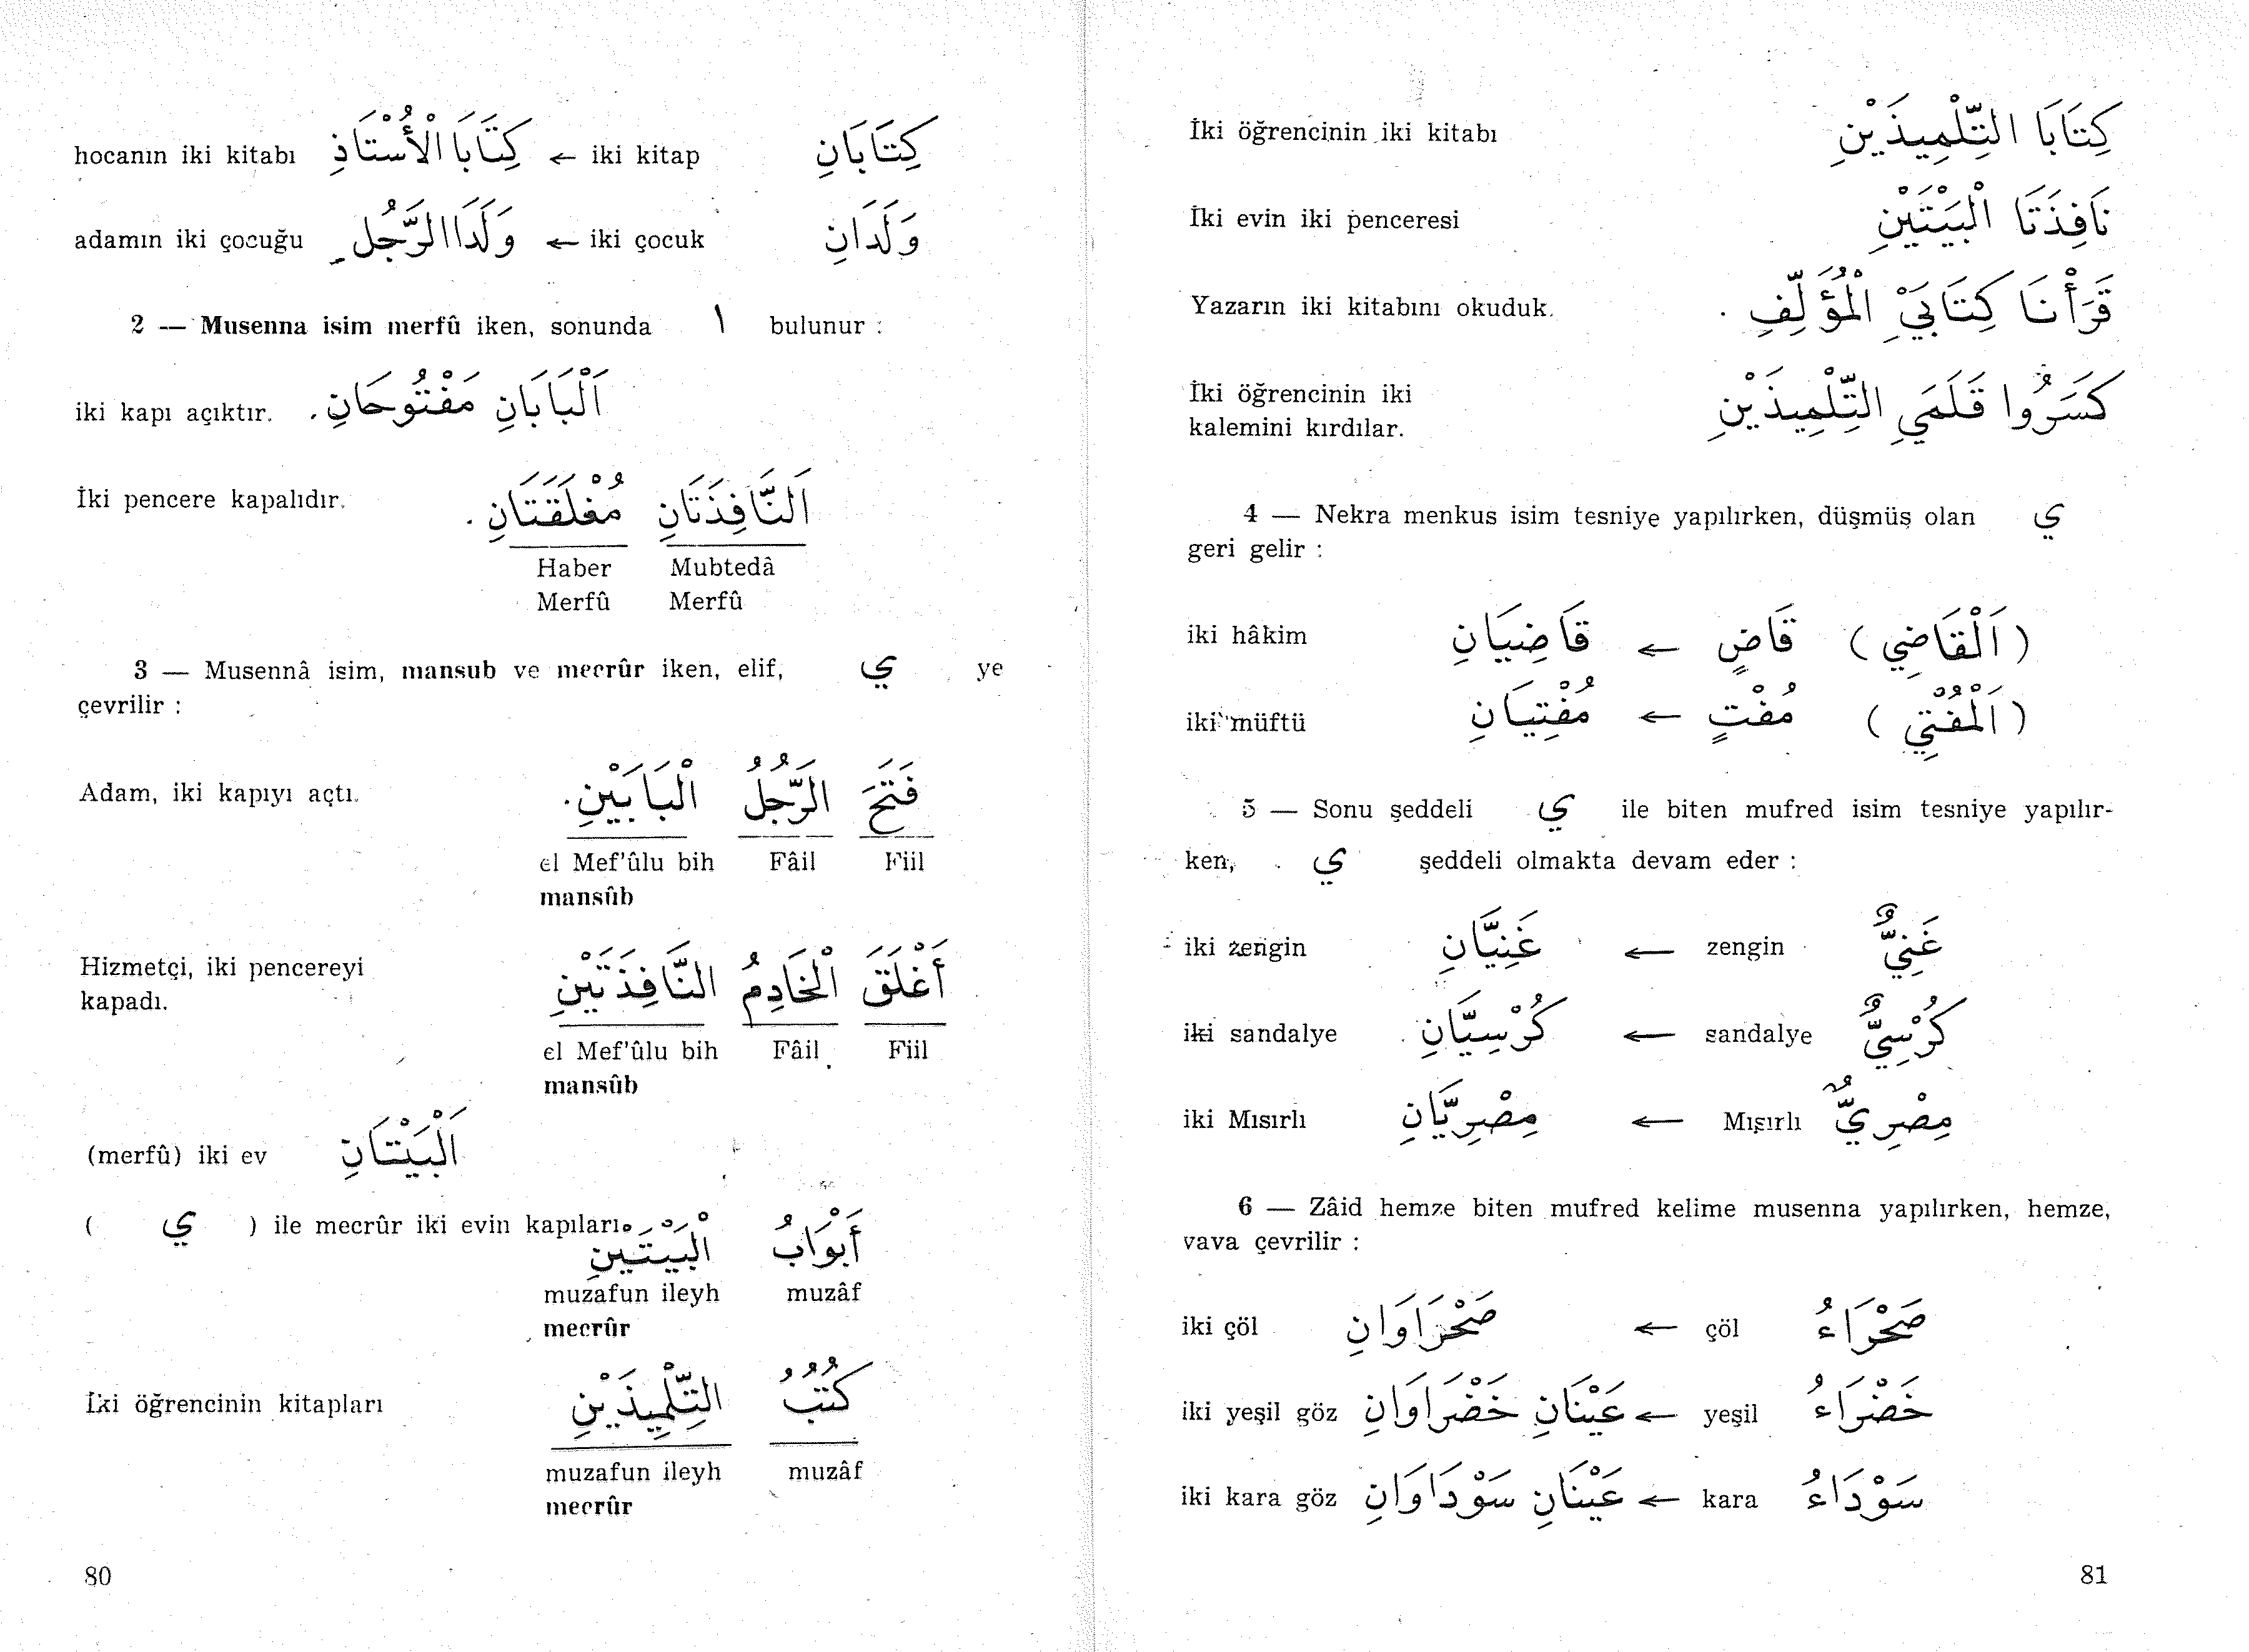 hocanın iki kitabı كِتَابَا الْأُسْتَاذِ ← iki kitap كِتَابَانِ
adamın iki çocuğu وَلَدَا الرَّجُلِ ← iki çocuk وَلَدَانِ
2 — Musenna isim merfû iken, sonunda ا bulunur :
iki kapı açıktır. اَلْبَابَانِ مَفْتُوحَانِ.
İki pencere kapalıdır. اَلنَّافِذَتَانِ مُغْلَقَتَانِ.
Haber Mubtedâ
Merfû Merfû
3 — Musennâ isim, mansub ve mecrûr iken, elif, ي ye
çevrilir :
Adam, iki kapıyı açtı. فَتَحَ الرَّجُلُ الْبَابَيْنِ.
el Mef'ûlu bih Fâil Fiil
mansûb
Hizmetçi, iki pencereyi أَغْلَقَ الْخَادِمُ النَّافِذَتَيْنِ
kapadı.
el Mef'ûlu bih Fâil Fiil
mansûb
(merfû) iki ev اَلْبَيْتَانِ
( ي ) ile mecrûr iki evin kapıları. أَبْوَابُ الْبَيْتَيْنِ
muzafun ileyh muzâf
mecrûr
İki öğrencinin kitapları كُتُبُ التِّلْمِيذَيْنِ
muzafun ileyh muzâf
mecrûr
80
İki öğrencinin iki kitabı كِتَابَا التِّلْمِيذَيْنِ
İki evin iki penceresi نَافِذَتَا الْبَيْتَيْنِ
Yazarın iki kitabını okuduk. قَرَأْنَا كِتَابَيْ الْمُؤَلِّفِ .
İki öğrencinin iki كَسَرُوا قَلَمَيِ التِّلْمِيذَيْنِ
kalemini kırdılar.
4 — Nekra menkus isim tesniye yapılırken, düşmüş olan ي
geri gelir :
iki hâkim قَاضِيَانِ ← قَاضٍ ( اَلْقَاضِي )
iki müftü مُفْتِيَانِ ← مُفْتٍ ( اَلْمُفْتِي )
5 — Sonu şeddeli ي ile biten mufred isim tesniye yapılır-
ken, ي şeddeli olmakta devam eder :
iki zengin غَنِيَّانِ ← zengin غَنِيٌّ
iki sandalye كُرْسِيَّانِ ← sandalye كُرْسِيٌّ
iki Mısırlı مِصْرِيَّانِ ← Mısırlı مِصْرِيٌّ
6 — Zâid hemze biten mufred kelime musenna yapılırken, hemze,
vava çevrilir :
iki çöl صَحْرَاوَانِ ← çöl صَحْرَاءُ
iki yeşil göz عَيْنَانِ خَضْرَاوَانِ ← yeşil خَضْرَاءُ
iki kara göz عَيْنَانِ سَوْدَاوَانِ ← kara سَوْدَاءُ
81